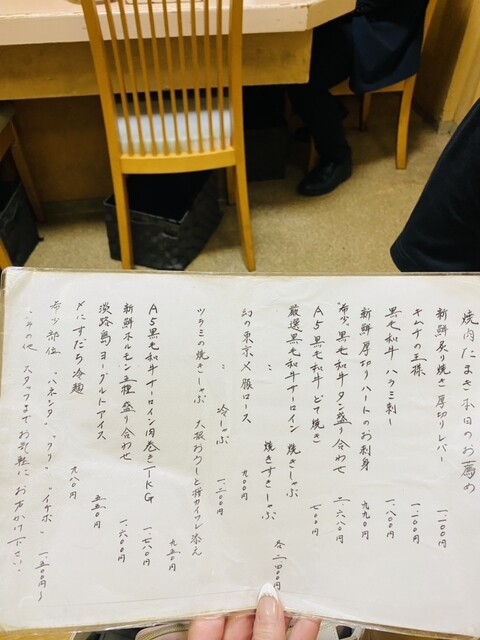 焼肉たまき本日のお薦め
新鮮炙り焼き厚切りレバー 一、一〇〇円
キムチの王様 一、二〇〇円
黒毛和牛 ハラミ刺し 一、八〇〇円
新鮮厚切りハートのお刺身 九九〇円
希少、黒毛和牛タン盛り合わせ 二、六八〇円
A5黒毛和牛 どて焼き 七〇〇円
厳選黒毛和牛サーロイン 焼きしゃぶ
〃 焼きすきしゃぶ 各二、四〇〇円
幻の東京X豚ロース 九〇〇円
〃 冷しゃぶ 一、二〇〇円
ツラミの焼きしゃぶ 大根おろしと貝割れ添え 九五〇円
A5黒毛和牛サーロイン肉巻きTKG 一、七八〇円
新鮮ホルモン五種盛り合わせ 一、六〇〇円
淡路島ヨーグルトアイス 五五〇円
〆にすだち冷麺 九八〇円
希少部位 、ハネシタ、、クリ、、イチボ、 一、五〇〇円〜
、その他 スタッフまでお気軽にお声かけ下さい、